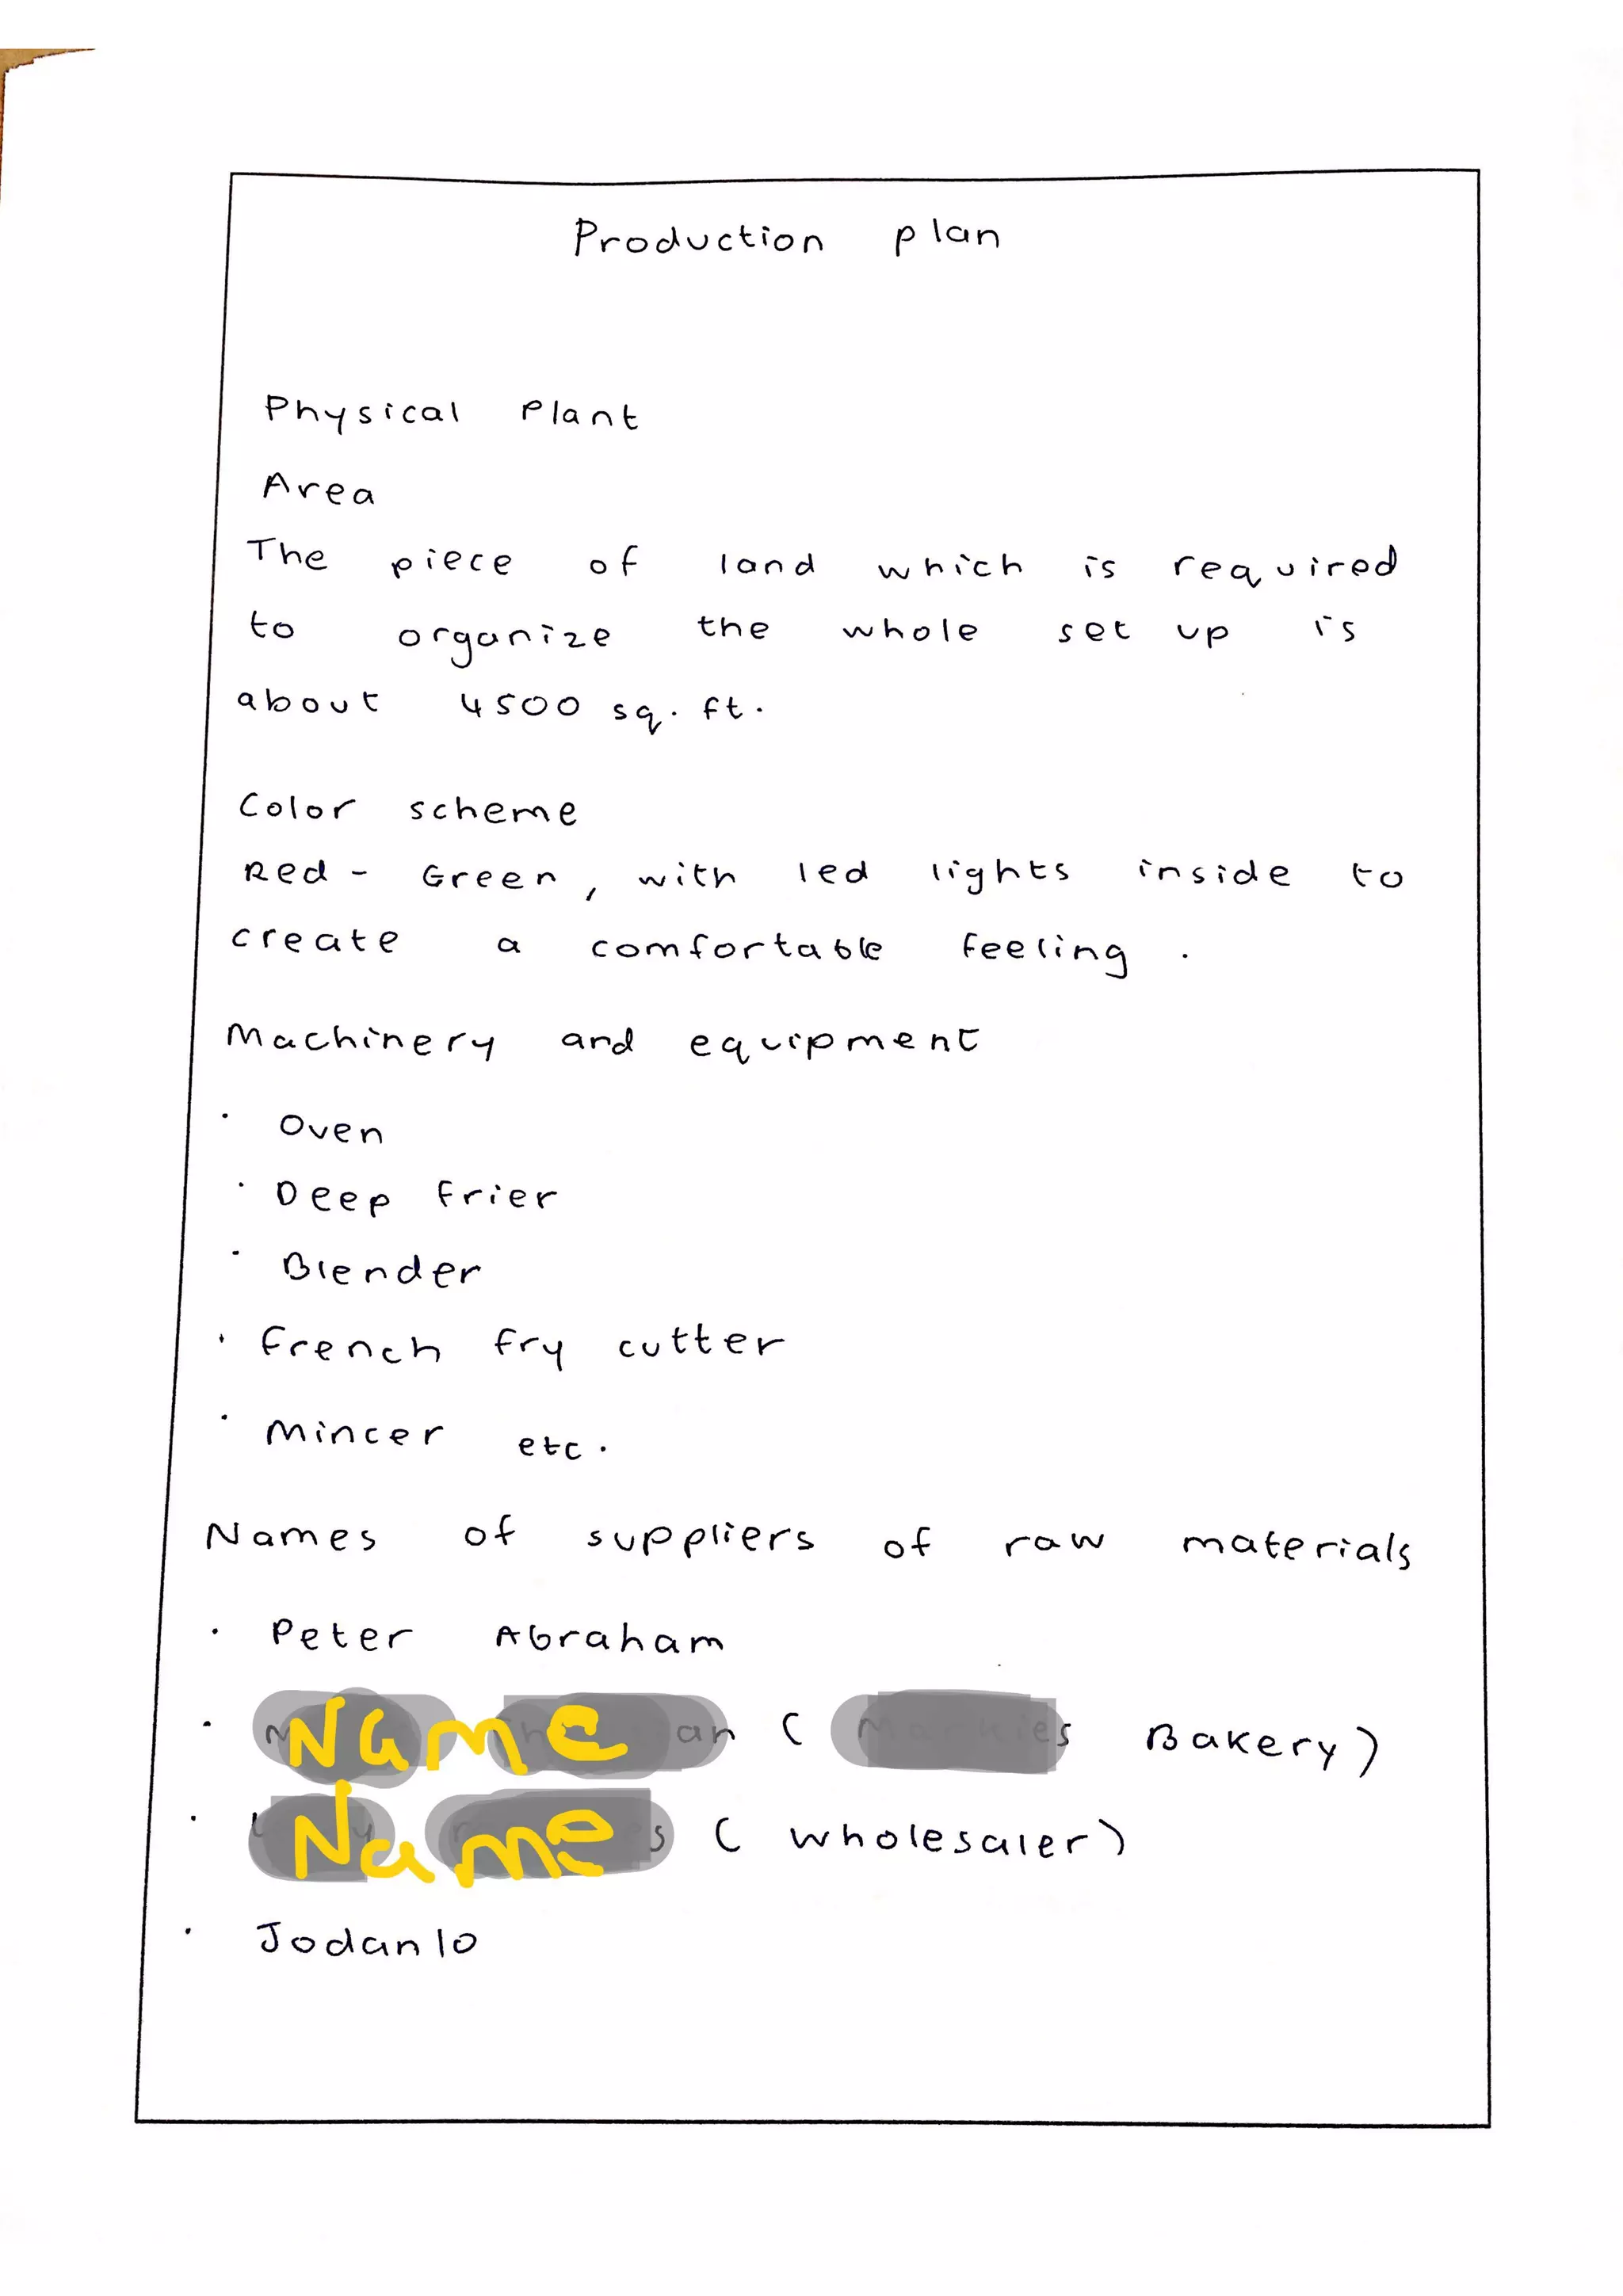 Production plan
Physical Plant
Area
The piece of land which is required
to organize the whole set up is
about 4500 sq. ft.
Color scheme
Red - Green, with led lights inside to
create a comfortable feeling.
Machinery and equipment
· Oven
· Deep frier
· Blender
· French fry cutter
· Mincer etc.
Names of suppliers of raw materials
· Peter Abraham
· Name ( Bakery)
· Name ( wholesaler)
· Jodanlo